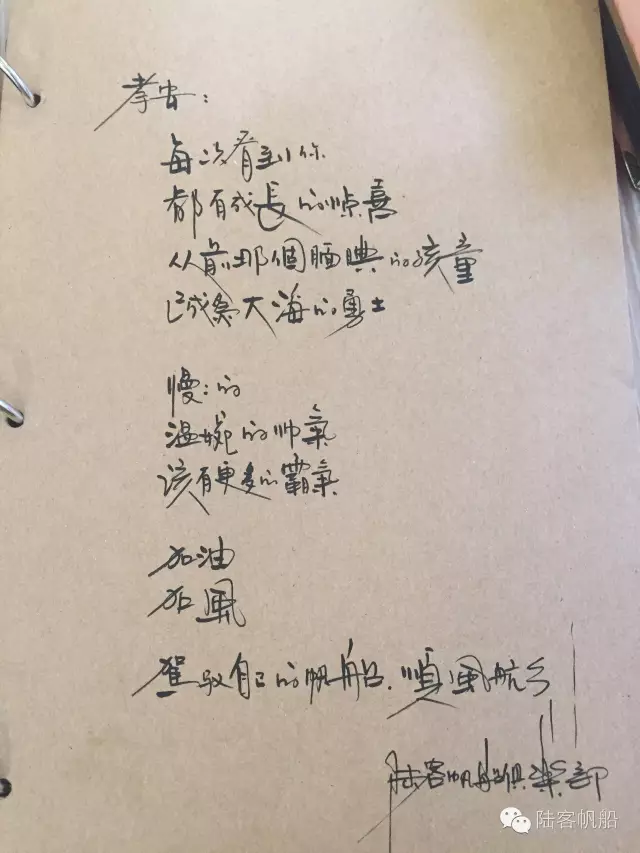 孝安：
每次看到你
都有成長的惊喜
从前那個腼腆的孩童
已成為大海的勇士
慢：的
温婉的帅氣
该有更多的霸氣
加油
加風
駕驭自己的帆船.順風航行!!!
陆客帆船俱樂部
陆客帆船